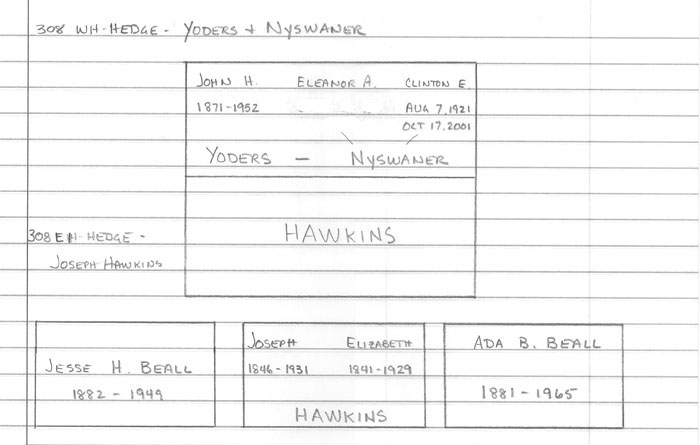 308 WH-HEDGE - YODERS + NYSWANER
JOHN H. ELEANOR A. CLINTON E.
1871-1952 AUG 7, 1921
OCT 17, 2001
YODERS - NYSWANER
HAWKINS
308 EH-HEDGE -
JOSEPH HAWKINS
JESSE H. BEALL
1882 - 1949
JOSEPH ELIZABETH
1846-1931 1841-1929
HAWKINS
ADA B. BEALL
1881 - 1965